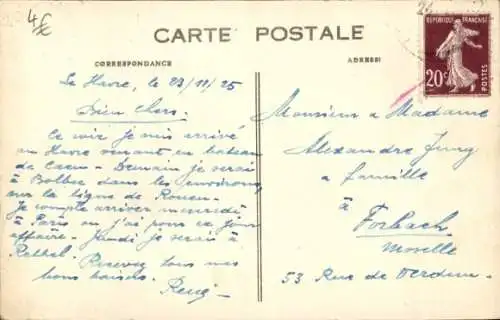 4€
CARTE POSTALE
CORRESPONDANCE
ADRESSE
RÉPUBLIQUE FRANÇAISE
20c
POSTES
Le Havre, le 23/11/25
Bien Chers,
Ce soir je suis arrivé
au Havre venant en bateau
de Caen - Demain je serai
à Bolbec dans les environs,
sur la ligne de Rouen -
Je compte arriver mercredi
à Paris où j'ai pour ce jour
affaire - Jeudi je serai à
Rethel. Recevez tous mes
bons baisers.
René -
Monsieur & Madame
Alexandre Jung
& famille
à
Forbach
Moselle
53 Rue de Verdun -